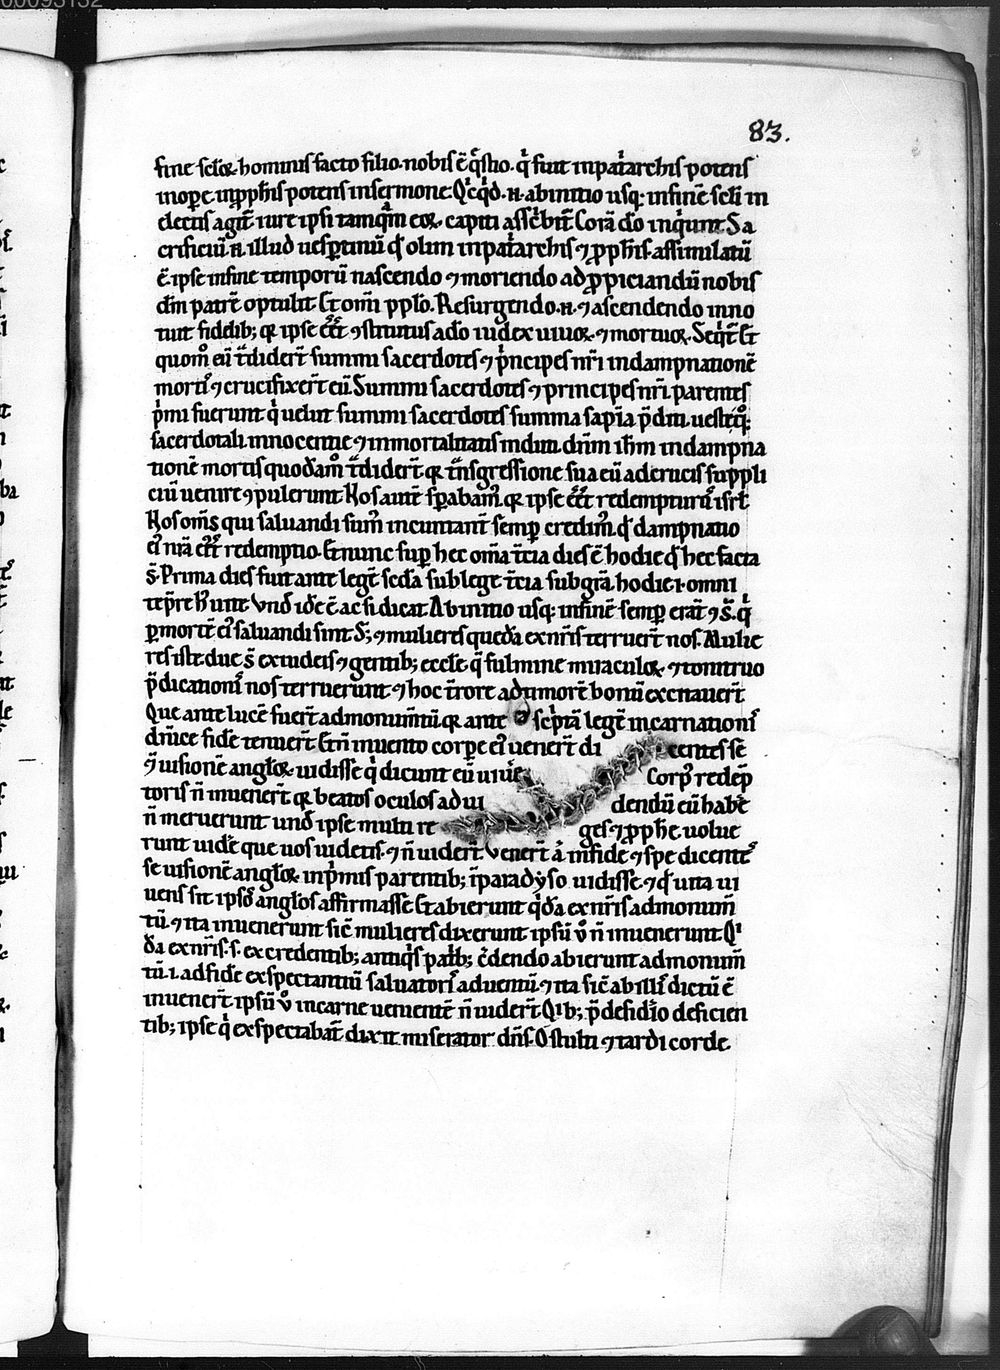 83.
fine sclōꝝ hominis facto filio. nobis ē q̄stio. qͥ fuit in patͥarchis potens
in oꝑe. in ꝓphis potens in sermone. Qͥcqͥd. n̄. ab initio usq; in finē scl̄i in
electis agit̄ iure ipsi tamqͣm eoꝝ capiti ass͛cͥbit̄ Corā dō inqͥunt Sa
crificiū n̄. illud uesꝑtinū qd̓ olim in patͥarchis ⁊ ꝓphis assimilatū
ē. ipse in fine temporū nascendo ⁊ moriendo ad ꝓpiciandū nobis
dm̄ patrē optulit Et om̄i pplo. Resurgendo. n̄. ⁊ ascendendo inno
tuit fidelib; qꝛ ipse eēt ꝯstitutus a dō iudex uiuoꝝ ⁊ mortuoꝝ. Seqͥt̄ Et
quomͦ eū tͣdider̄t summi sacerdotes ⁊ pͥncipes nr̄i in dampnationē
mortͥ ⁊ crucifixer̄t eū Summi sacerdotes ⁊ principes nr̄i parentes
pͥmi fuerunt qͥ uelut summi sacerdotes summa sapīa p̄diti
sacerdotali innocentie ⁊ immortalitatis induti dn̄m ihm̄ in dampna
tionē mortis quodāmͦ tͣdider̄t. qꝛ tͣnsgressione sua eū ad crucis suppli
ciū uenire ꝯpulerunt Nos aut̄ sꝑabamꝰ. qꝛ ipse eēt redempturꝰ isrl̄
Nos om̄s qui saluandi sumꝰ in cunctant̄ semꝑ credimꝰ. qd̓ dampnatio
eiꝰ nr̄a eēt redemptio. Et nunc suꝑ hec om̄a tͥcia dies ē hodie qd̓ hec facta
s̄. Prima dies fuit ante legē. sedā sub lege tͥcia sub gr̄a. hodie. i. omni
tēpr̄e Vnd̓ idē ē ac si dicat Ab initio usq; in finē semꝑ
ꝑ mortē eiꝰ saluandi sint S;, ⁊ mulieres quedā ex nr̄is terruer̄t nos. Mulie
res iste due s̄ ex iudeis ⁊ gentib; eccl̄e. qͥ fulmine miraculoꝝ. ⁊ tonitruo
p̄dicationꝭ nos terruerunt ⁊ hoc tr̄rore ad timorē bonū excitauer̄t
Que ante lucē fuer̄t ad monum̄tū. qꝛ ante scͥptā legē incarnationꝭ
diuīe fidē tenuer̄t Et n̄ inuento corꝑe eiꝰ uener̄t di centes sē
⁊ uisionē angloꝝ uidisse qͥ dicunt eū uiue Corpꝰ redēp
toris n̄ inuener̄t. qꝛ beatos oculos ad ui dendū eū habē
n̄ meruerunt und̓ ipse multi re ges ⁊ ꝓphe. uolue
runt uidē que uos uidetis. ⁊ n̄ uider̄t Vener̄t ā. in fide ⁊ spe dicentꝭ
se uisionē angloꝝ in pͥmis parentib; ī paradyso uidisse. ⁊ qd̓ uita ui
uens sit ipsōꝝ anglos affirmasse Et abierunt qͥdā ex nr̄is ad monum̄
tū. ⁊ ita inuenerunt sic̄ mulieres dixerunt ipsū ꝟ n̄ inuenerunt Qͥ
dā ex nr̄is. s. ex credentib; antiqͥs patͥb; c͛dendo abierunt ad monum̄
tū. i. ad fidē exspectantiū saluatorꝭ aduentū. ⁊ ita sic̄ ab illꝭ dictū ē
inuener̄t ipsū ꝟ in carne uenientē n̄ uider̄t Qͥb; p̄ desidīo deficien
tib; ipse qͥ exspectabat̄ dixit miserator dn̄s. O stulti ⁊ tardi corde.